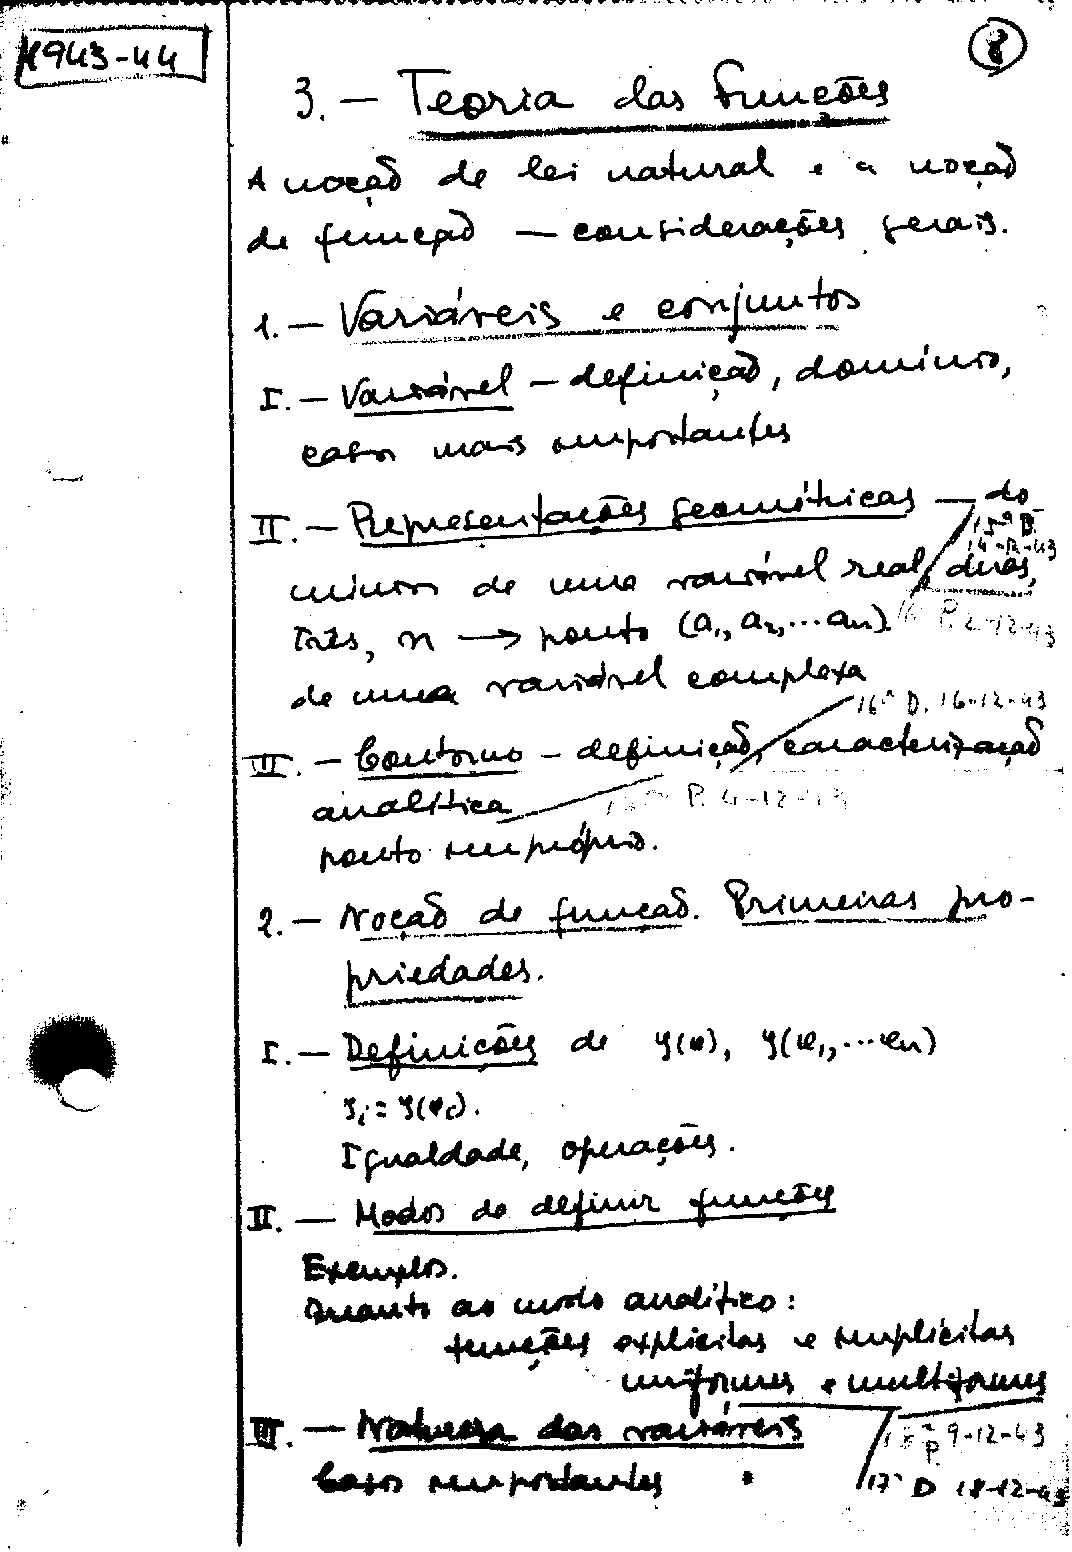 1943-44
8
3. — Teoria das funções
A noção de lei natural e a noção
de função — considerações gerais.
1. — Variáveis e conjuntos
I. — Variável — definição, domínio,
casos mais importantes
II. — Representações geométricas — do
15ª D.
14-12-43
mínios de uma variável real, duas,
três, n → ponto (a₁, a₂, ... aₙ).
P. 2-12-43
de uma variável complexa
16ª D. 16-12-43
III. — Contorno — definição, caracterização
analítica
P. 4-12-43
ponto impróprio.
2. — Noção de função. Primeiras pro-
priedades.
I. — Definições de y(x), y(x₁, ... xₙ)
yᵢ = y(xᵢ).
Igualdade, operações.
II. — Modos de definir funções
Exemplos.
Quanto ao modo analítico:
funções explícitas e implícitas
uniformes e multiformes
III. — Natureza das variáveis
P. 9-12-43
Casos importantes
17ª D 18-12-43